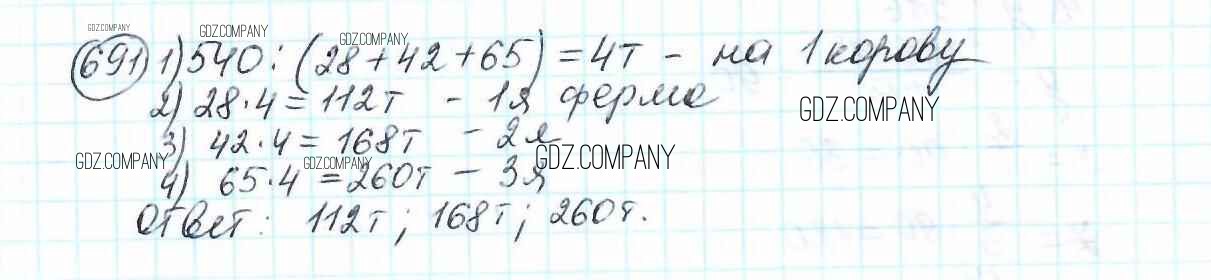 GDZ.COMPANY GDZ.COMPANY GDZ.COMPANY
691 1) 540 : (28 + 42 + 65) = 4т - на 1 корову
2) 28 · 4 = 112т - 1я ферма
GDZ.COMPANY
3) 42 · 4 = 168т - 2я
GDZ.COMPANY GDZ.COMPANY GDZ.COMPANY
4) 65 · 4 = 260т - 3я
Ответ: 112т; 168т; 260т.